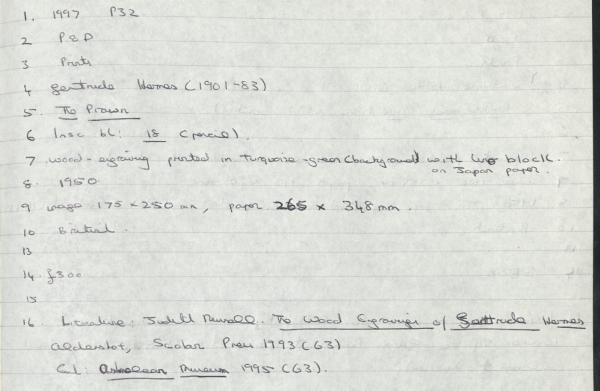 1. 1997 P32
2 P&D
3 Prints
4 Gertrude Hermes (1901-83)
5. The Prawn
6 Insc bl: 18 (pencil).
7 wood-egraving printed in turquoise-green (background) with two block.
on Japan paper.
8. 1950
9 image 175 x 250 mm, paper 265 x 348 mm.
10 British.
13
14 £300
15
16. Literature: Judith Russell. The Wood Egravings of Gertrude Hermes
Aldershot, Scolar Press 1993 (63)
Cl: Ashmolean Museum 1995 (63).